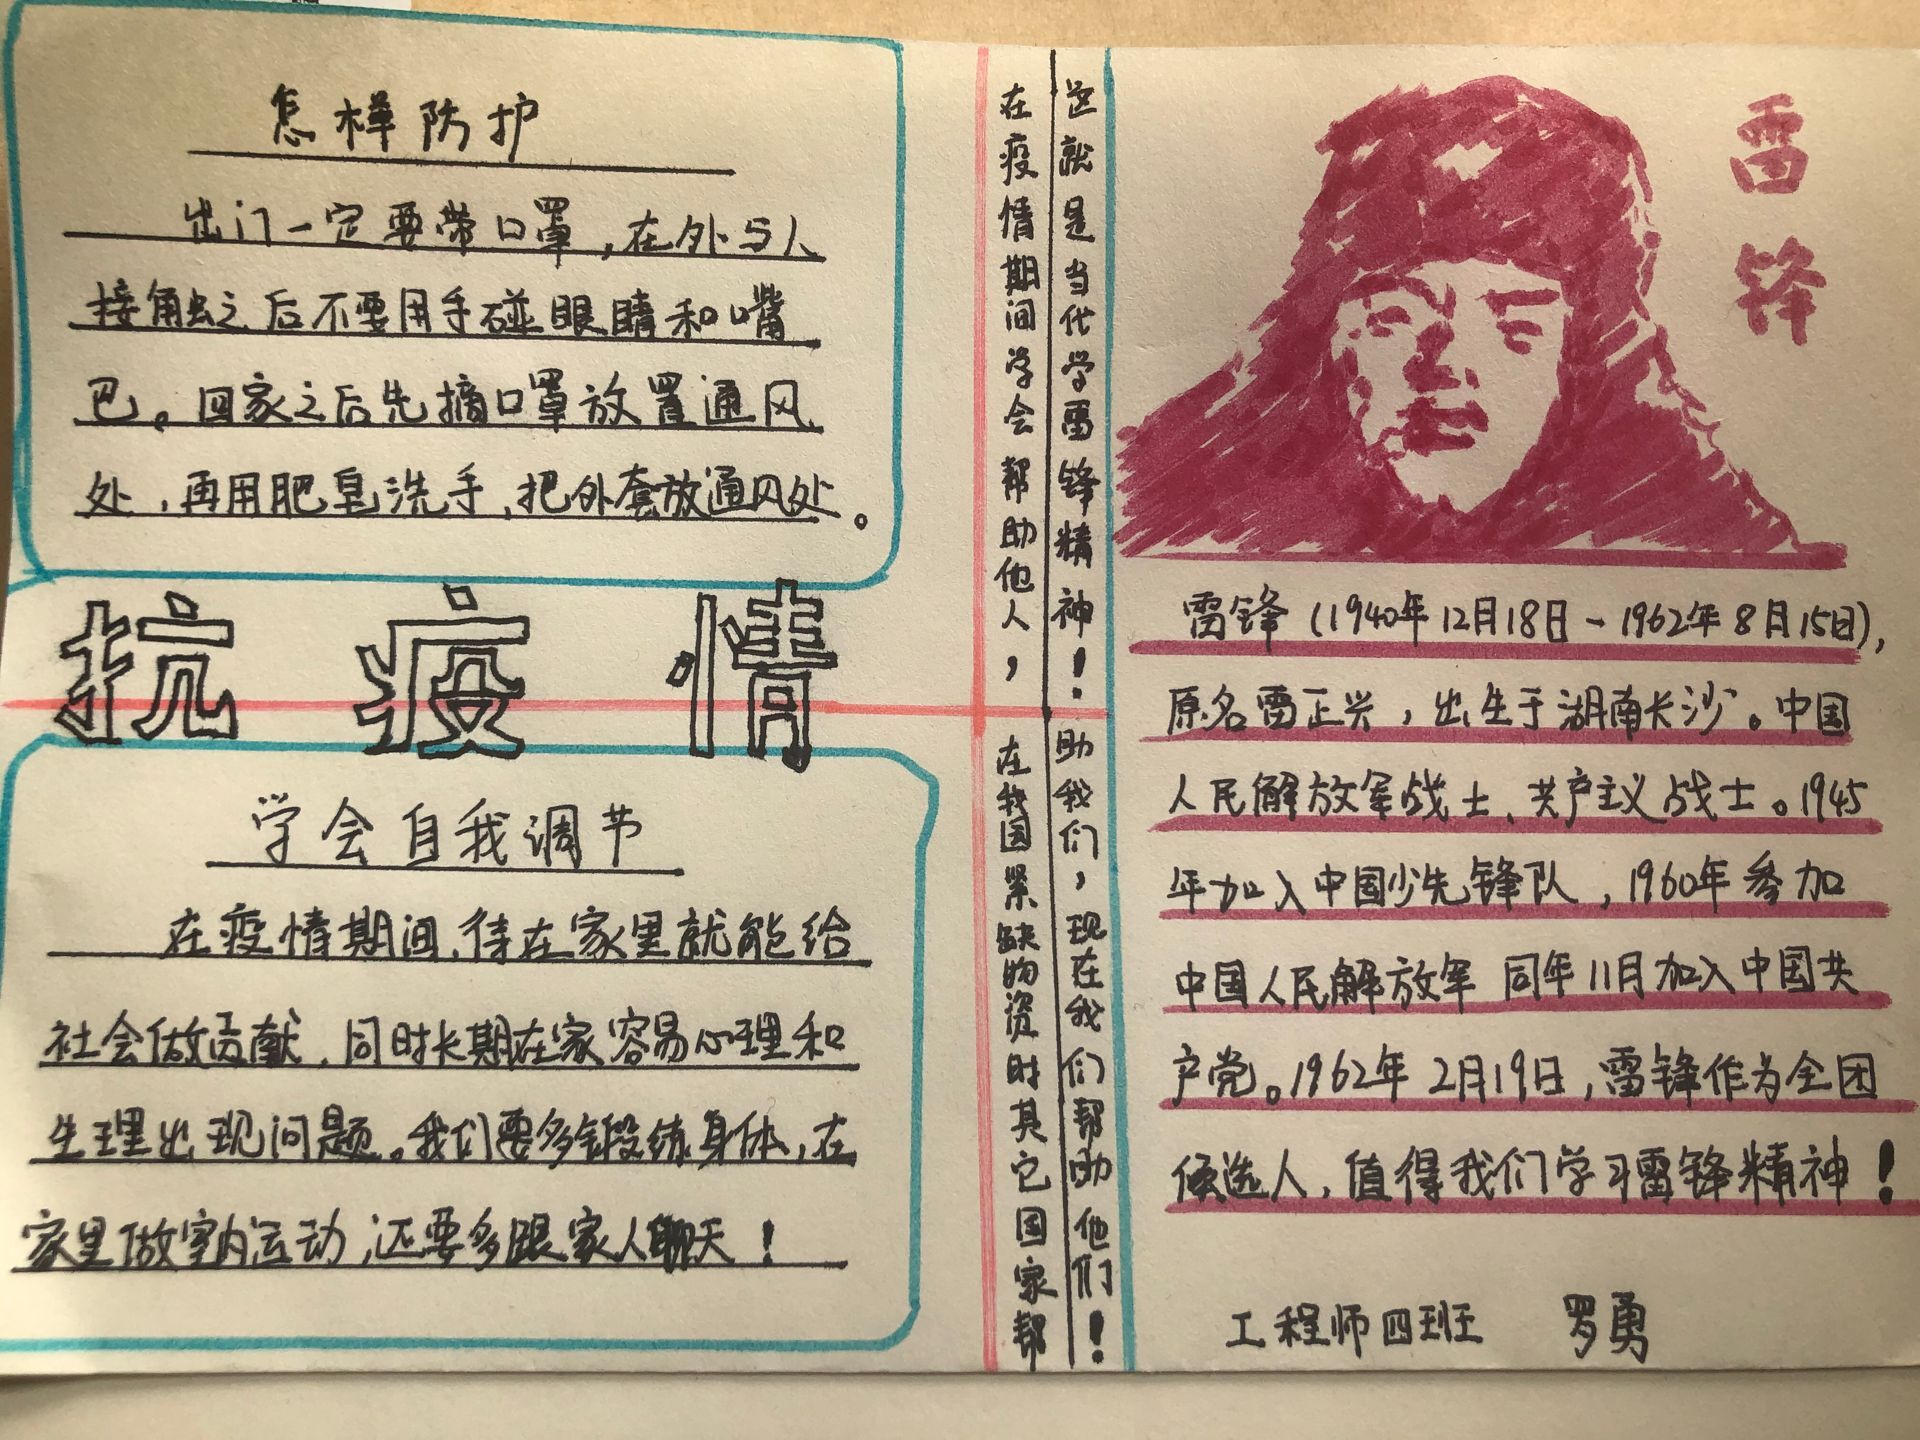 怎样防护
出门一定要带口罩，在外与人
接触之后不要用手碰眼睛和嘴
巴。回家之后先摘口罩放置通风
处，再用肥皂洗手，把外套放通风处。
抗疫情
学会自我调节
在疫情期间，待在家里就能给
社会做贡献，同时长期在家容易心理和
生理出现问题。我们要多锻练身体，在
家里做室内运动，还要多跟家人聊天！
在疫情期间学会帮助他人，
这就是当代学雷锋精神！
在我国紧缺物资时其它国家帮
助我们，现在我们帮助他们！
雷锋
雷锋（1940年12月18日－1962年8月15日），
原名雷正兴，出生于湖南长沙。中国
人民解放军战士、共产主义战士。1945
年加入中国少先锋队，1960年参加
中国人民解放军 同年11月加入中国共
产党。1962年2月19日，雷锋作为全团
候选人，值得我们学习雷锋精神！
工程师四班 罗勇